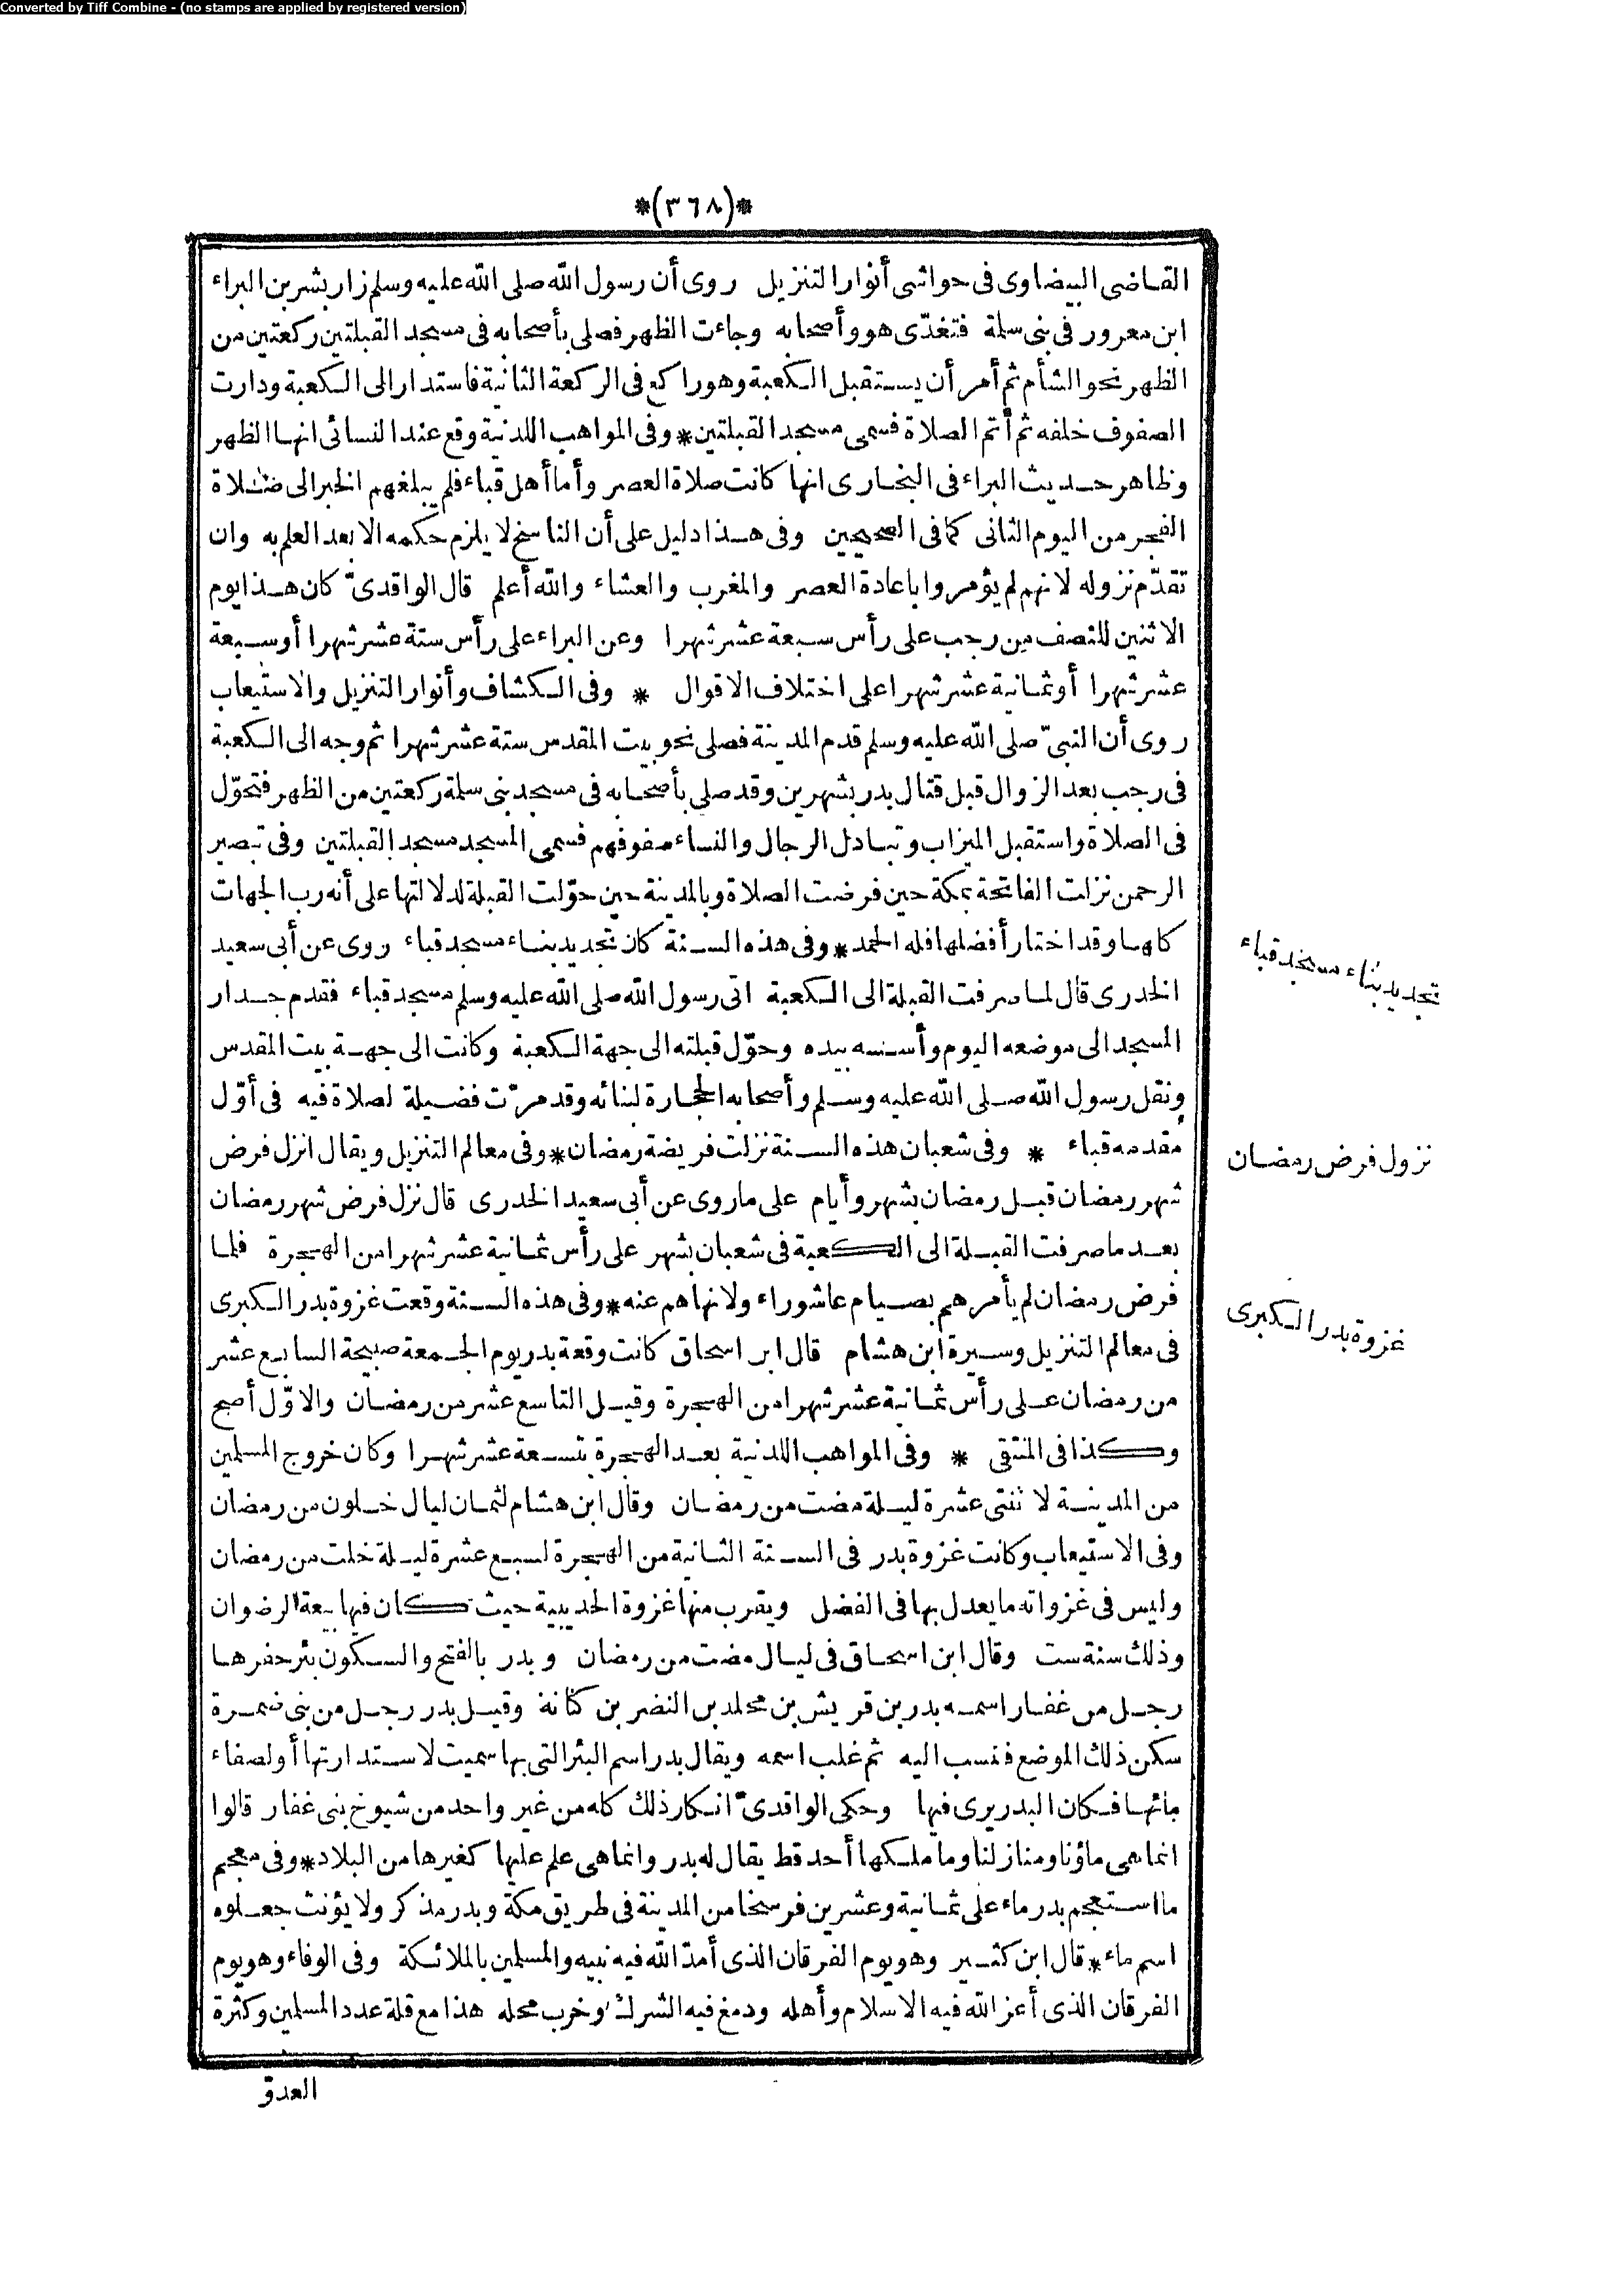 Converted by Tiff Combine - (no stamps are applied by registered version)
*(٣٦٨)*
القاضى البيضاوى فى حواشى أنوار التنزيل روى أن رسول الله صلى الله عليه وسلم زار بشر بن البراء
ابن معرور فى بنى سلمة فتغدّى هو وأصحابه وجاءت الظهر فصلى بأصحابه فى مسجد القبلتين ركعتين من
الظهر نحو الشأم ثم أمر أن يستقبل الكعبة وهو راكع فى الركعة الثانية فاستدار الى الكعبة ودارت
الصفوف خلفه ثم أتم الصلاة فسمى مسجد القبلتين * وفى المواهب اللدنية وقع عند النسائى انها الظهر
وظاهر حديث البراء فى البخارى انها كانت صلاة العصر وأما أهل قباء فلم يبلغهم الخبر الى صلاة
الفجر من اليوم الثانى كما فى الصحيحين وفى هذا دليل على أن الناسخ لا يلزم حكمه الا بعد العلم به وان
تقدّم نزوله لانهم لم يؤمروا باعادة العصر والمغرب والعشاء والله أعلم قال الواقدىّ كان هذا يوم
الاثنين للنصف من رجب على رأس سبعة عشر شهرا وعن البراء على رأس ستة عشر شهرا أو سبعة
عشر شهرا أو ثمانية عشر شهرا على اختلاف الاقوال * وفى الكشاف وأنوار التنزيل والاستيعاب
روى أن النبىّ صلى الله عليه وسلم قدم المدينة فصلى نحو بيت المقدس ستة عشر شهرا ثم وجه الى الكعبة
فى رجب بعد الزوال قبل قتال بدر بشهرين وقد صلى بأصحابه فى مسجد بنى سلمة ركعتين من الظهر فتحوّل
فى الصلاة واستقبل الميزاب وتبادل الرجال والنساء صفوفهم فسمى المسجد مسجد القبلتين وفى تبصير
الرحمن نزلت الفاتحة بمكة حين فرضت الصلاة وبالمدينة حين حوّلت القبلة لدلالتها على أنه رب الجهات
كلها وقد اختار أفضلها فله الحمد * وفى هذه السنة كان تجديد بناء مسجد قباء روى عن أبى سعيد
الخدرى قال لما صرفت القبلة الى الكعبة اتى رسول الله صلى الله عليه وسلم مسجد قباء فقدم جدار
المسجد الى موضعه اليوم وأسسه بيده وحوّل قبلته الى جهة الكعبة وكانت الى جهة بيت المقدس
ونقل رسول الله صلى الله عليه وسلم وأصحابه الحجارة لبنائه وقد مرّت فضيلة لصلاة فيه فى أوّل
مقدمه قباء * وفى شعبان هذه السنة نزلت فريضة رمضان * وفى معالم التنزيل ويقال انزل فرض
شهر رمضان قبل رمضان بشهر وأيام على ما روى عن أبى سعيد الخدرى قال نزل فرض شهر رمضان
بعد ما صرفت القبلة الى الكعبة فى شعبان بشهر على رأس ثمانية عشر شهرا من الهجرة فلما
فرض رمضان لم يأمرهم بصيام عاشوراء ولا نهاهم عنه * وفى هذه السنة وقعت غزوة بدر الكبرى
فى معالم التنزيل وسيرة ابن هشام قال ابن اسحاق كانت وقعة بدر يوم الجمعة صبيحة السابع عشر
من رمضان على رأس ثمانية عشر شهرا من الهجرة وقيل التاسع عشر من رمضان والاوّل أصح
وكذا فى المنتقى * وفى المواهب اللدنية بعد الهجرة بتسعة عشر شهرا وكان خروج المسلمين
من المدينة لا ثنتى عشرة ليلة مضت من رمضان وقال ابن هشام لثمان ليال خلون من رمضان
وفى الاستيعاب وكانت غزوة بدر فى السنة الثانية من الهجرة لسبع عشرة ليلة خلت من رمضان
وليس فى غزواته ما يعدل بها فى الفضل ويقرب منها غزوة الحديبية حيث كان فيها بيعة الرضوان
وذلك سنة ست وقال ابن اسحاق فى ليال مضت من رمضان وبدر بالفتح والسكون بئر حفرها
رجل من غفار اسمه بدر بن قريش بن مخلد بن النضر بن كنانة وقيل بدر رجل من بنى ضمرة
سكن ذلك الموضع فنسب اليه ثم غلب اسمه ويقال بدر اسم البئر التى بها سميت لاستدارتها أو لصفاء
مائها فكان البدر يرى فيها وحكى الواقدىّ انكار ذلك كله من غير واحد من شيوخ بنى غفار قالوا
انما هى ماؤنا ومنازلنا وما ملكها أحد قط يقال له بدر وانما هى علم عليها كغيرها من البلاد * وفى معجم
ما استعجم بدر ماء على ثمانية وعشرين فرسخا من المدينة فى طريق مكة وبدر مذكر ولا يؤنث جعلوه
اسم ماء * قال ابن كثير وهو يوم الفرقان الذى أمدّ الله فيه نبيه والمسلمين بالملائكة وفى الوفاء وهو يوم
الفرقان الذى أعز الله فيه الاسلام وأهله ودمغ فيه الشرك وخرب محله هذا مع قلة عدد المسلمين وكثرة
العدوّ
تجديد بناء مسجد قباء
نزول فرض رمضان
غزوة بدر الكبرى